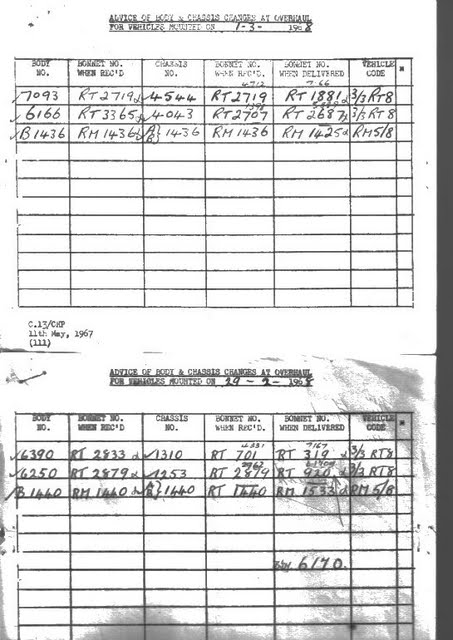 ADVICE OF BODY & CHASSIS CHANGES AT OVERHAUL
FOR VEHICLES MOUNTED ON 1-3- 1968
BODY NO. BONNET NO. WHEN REC'D CHASSIS NO. BONNET NO. WHEN REC'D. BONNET NO. WHEN DELIVERED VEHICLE CODE *
7093 RT 2719 4544 RT 2719 RT 1881 3/3 RT8
6166 RT 3365 4043 RT 2707 RT 2687 3/3 RT8
B1436 RM 1436 A} B} 1436 RM 1436 RM 1425 RM5/8
C.13/CHP
11th May, 1967
(111)
ADVICE OF BODY & CHASSIS CHANGES AT OVERHAUL
FOR VEHICLES MOUNTED ON 29-2- 1968
BODY NO. BONNET NO. WHEN REC'D CHASSIS NO. BONNET NO. WHEN REC'D. BONNET NO. WHEN DELIVERED VEHICLE CODE *
6390 RT 2833 1310 RT 701 RT 319 3/3 RT8
6250 RT 2879 1253 RT 2879 RT 920 3/3 RT8
B1440 RM 1440 A} B} 1440 RT 1440 RM 1533 RM5/8
6170.